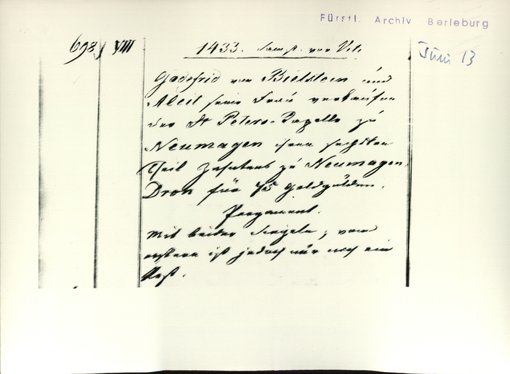 Fürstl. Archiv Berleburg
698/ VIII
1433. Samst. vor Vit.
Juni 13
Godefrid von Bielstein und
Aleit seine Frau verkaufen
der St Peters-Capelle zu
Neumagen ihren sechsten
Theil Zehntens zu Neumagen
Dron für 45 Goldgülden.
Pergament.
Mit beider Siegeln; vom
erstern ist jedoch nur noch ein
Rest.